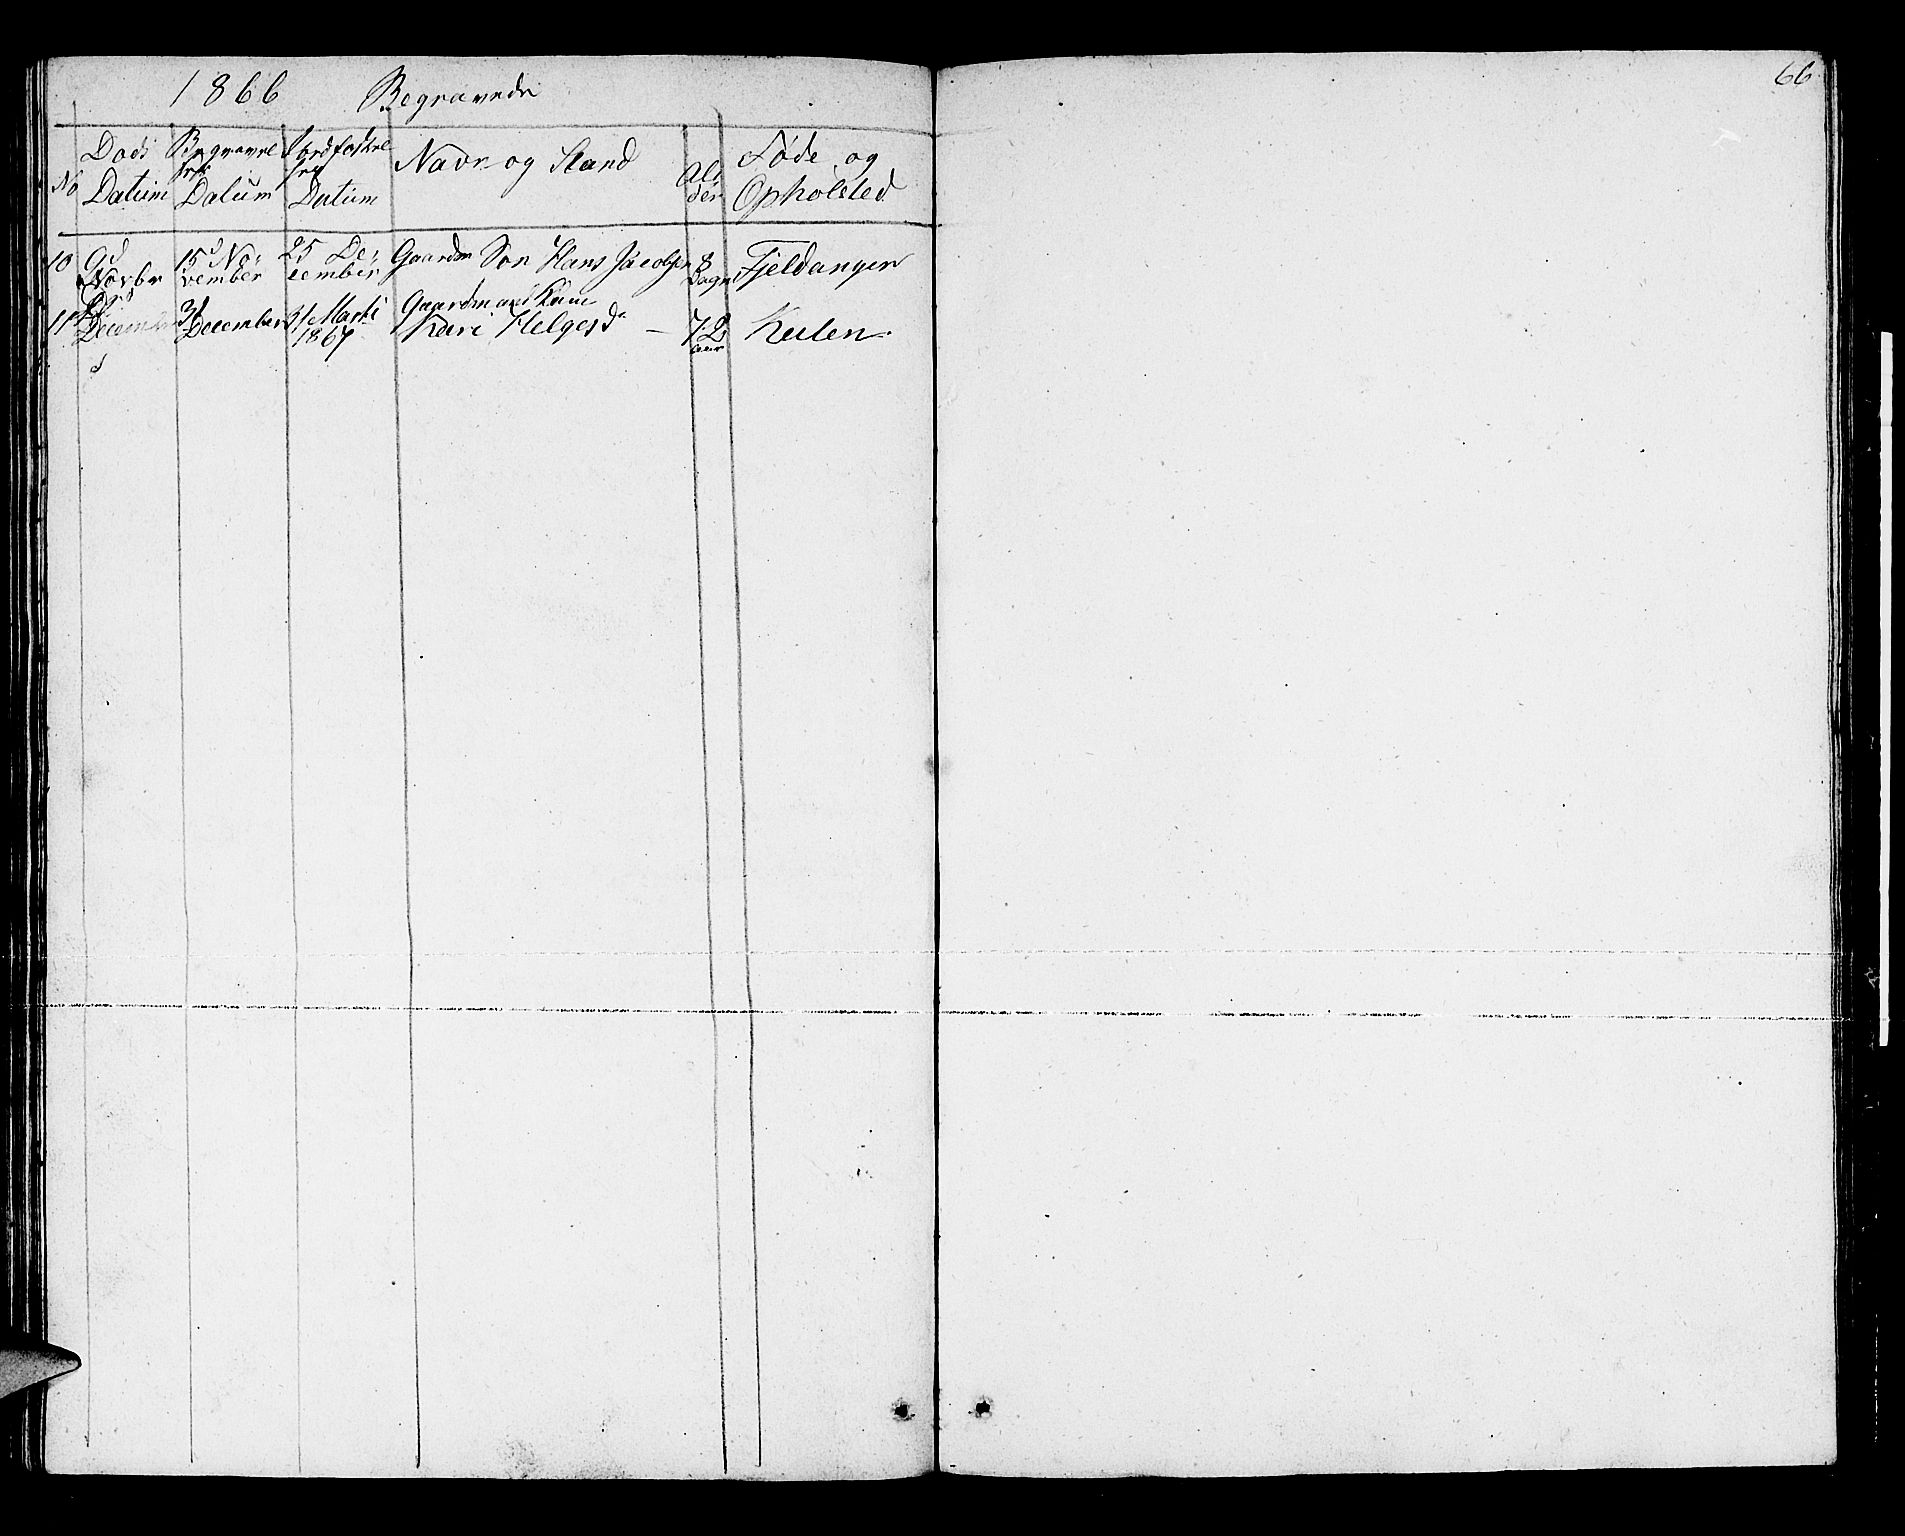 66
1866 Begravede
No
Døds Datum
Begravel sets Datum
Jordfæstel sens Datum
Navn og Stand
Al der
Føde og Opholsted
10 9d Novbr 15d No: vember 25 De: cember Gaardm Søn Hans Jacobsen 8 Dage Fjeldanger
11 December 31 December 31 Marts 1867 Gaardmands Kone Kari Helgesd. — 72 aar